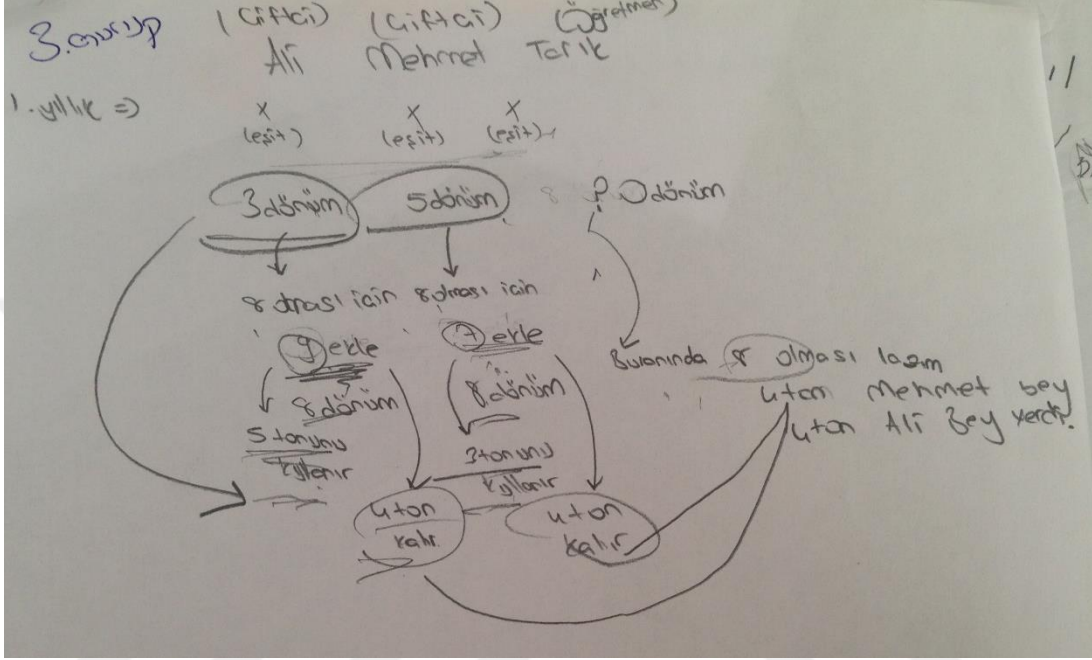 3. Grup (Çiftçi) (Çiftçi) (Öğretmen)
Ali Mehmet Tarık
1. yıllık => x x x
(eşit) (eşit) (eşit)
3 dönüm 5 dönüm 8 ? 0 dönüm
8 olması için 8 olması için
9 ekle 7 ekle
8 dönüm 8 dönüm
5 tonunu
kullanır
3 tonunu
kullanır
4 ton
kalır
4 ton
kalır
Buranında 8 olması lazım
4 ton Mehmet bey
4 ton Ali Bey verdi.